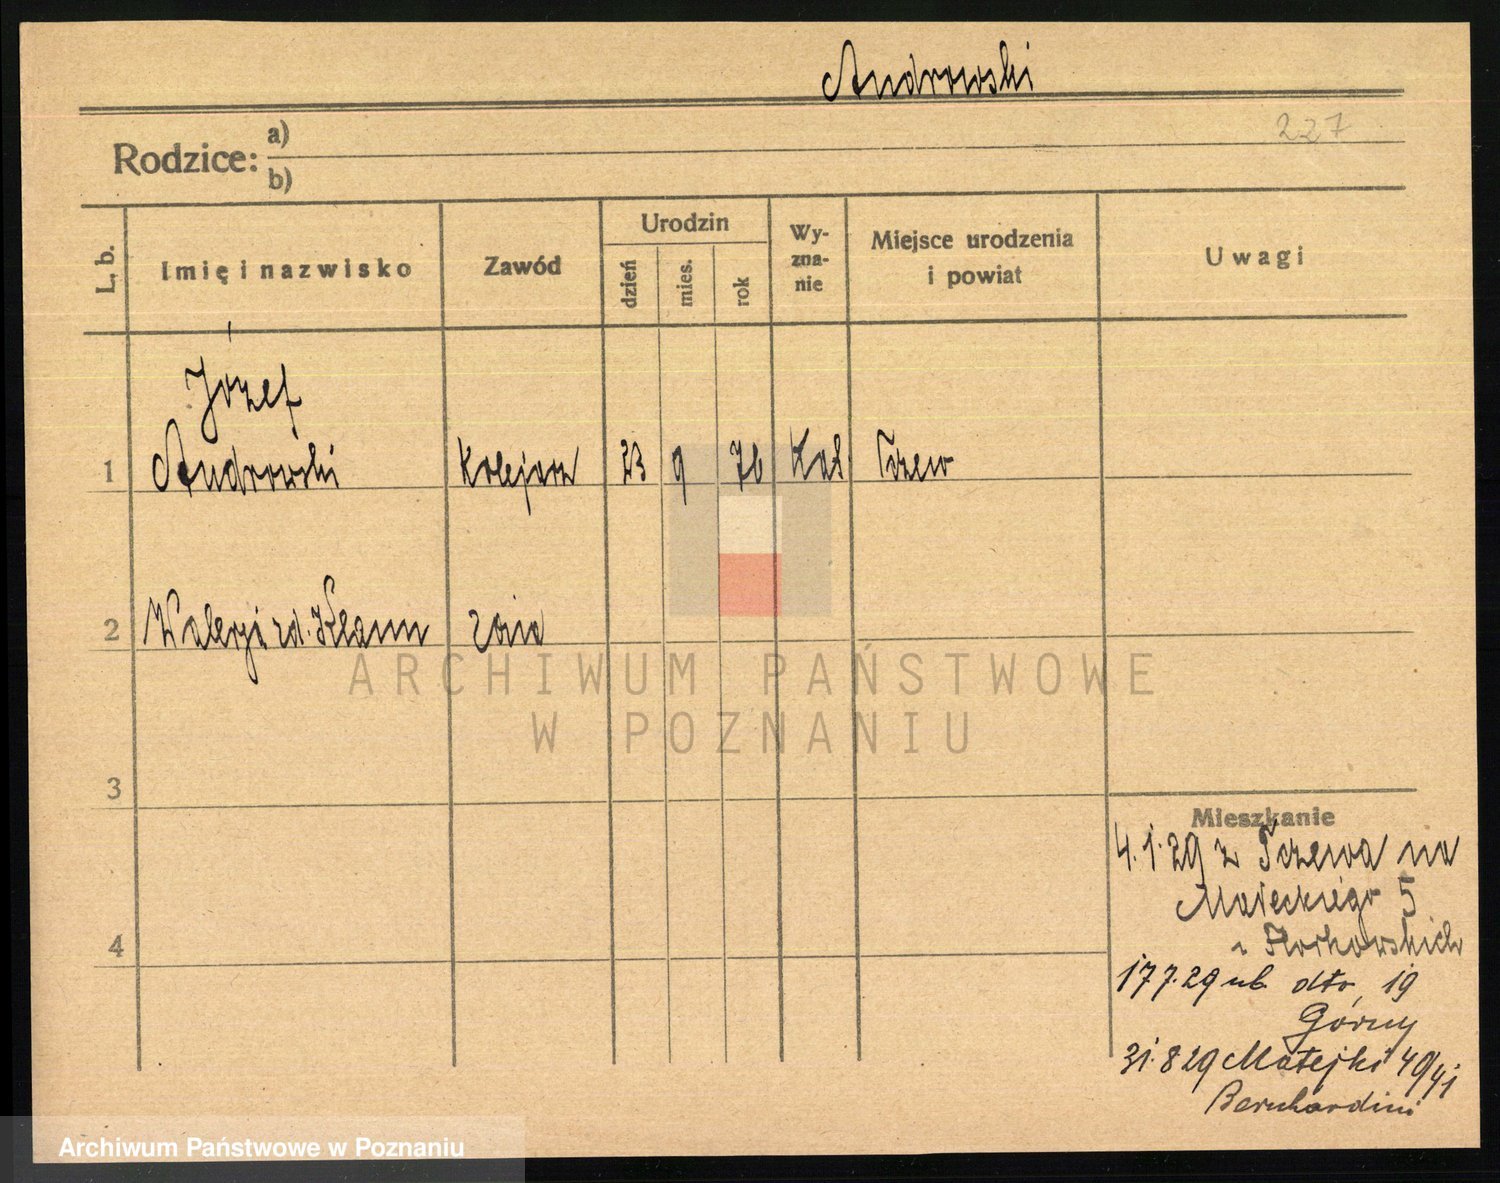 Androwski
227
Rodzice: a)
b)
L. b. Imię i nazwisko Zawód Urodzin dzień mies. rok Wy-zna-nie Miejsce urodzenia i powiat Uwagi
Józef
1 Androwski Kolejarz 23 9 76 Kat Tczew
2 Walerja rd. Klamm żona
ARCHIWUM PAŃSTWOWE
W POZNANIU
3
Mieszkanie
4.1.29 z Tczewa na
Małeckiego 5
4
17 7.29 ub. dto, 19
Górny
31.8 29 Matejki 40/41
Bernhardini
Archiwum Państwowe w Poznaniu